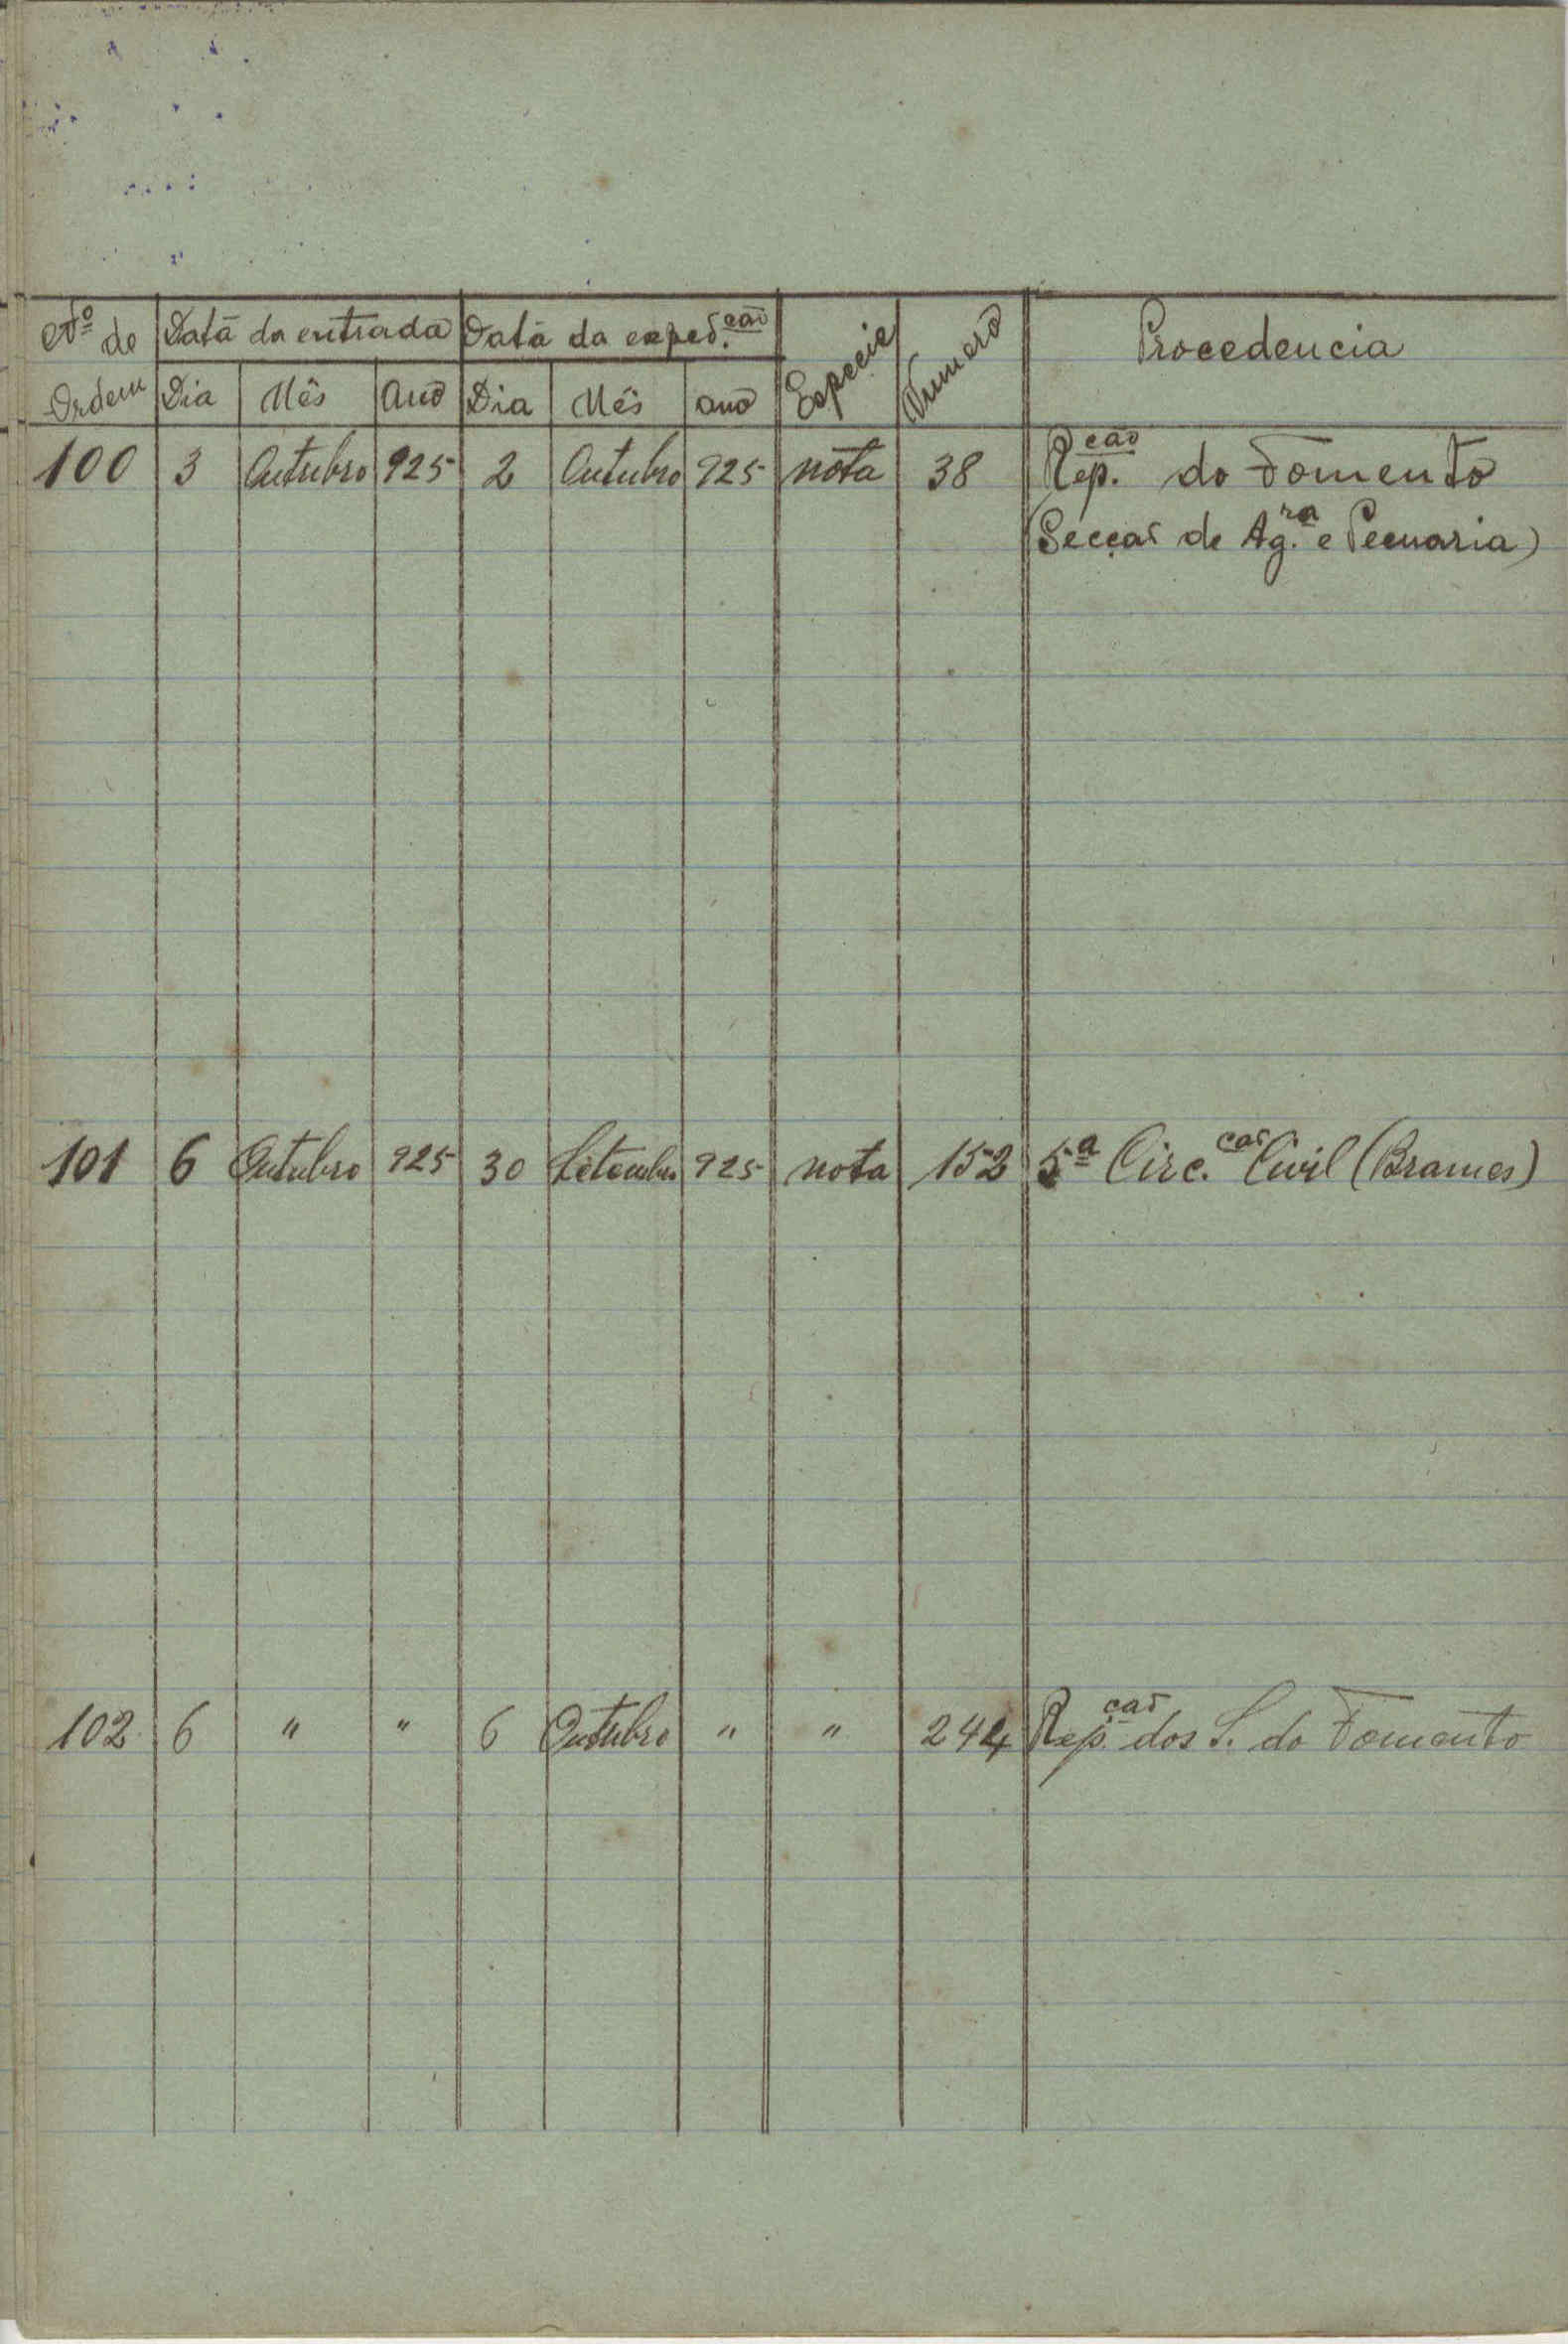 Nº de Data da entrada Data da exped.ção Especie Numero Procedencia
Ordem Dia Mês Ano Dia Mês ano
100 3 Outubro 925 2 Outubro 925 nota 38 Rep.ção do Fomento
(Secção de Ag.ra e Pecuaria)
101 6 Outubro 925 30 Setembro 925 nota 152 5ª Circ.ção Civil (Brames)
102 6 " " 6 Outubro " " 244 Rep.ção dos S. do Fomento